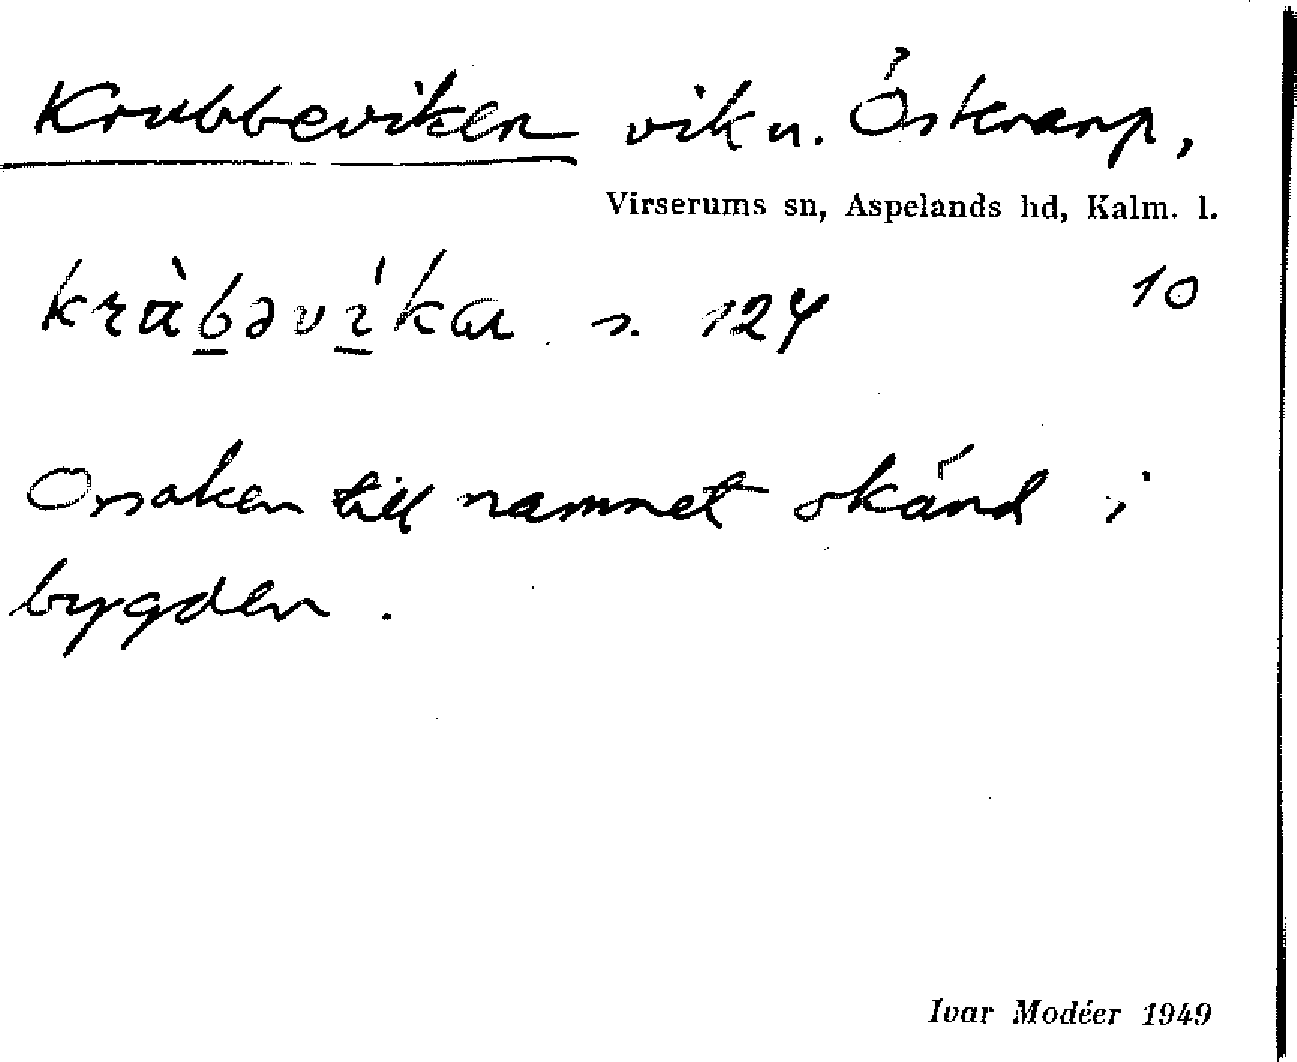 Krubbeviken vik u. Österarp,
Virserums sn, Aspelands hd, Kalm. l.
krùb̲əví̲ka s. 124 10
Orsaken till namnet okänd i
bygden.
Ivar Modéer 1949